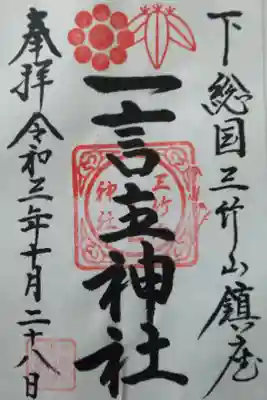 下総国三竹山鎮座
一言主神社
三竹山
神社
奉拝 令和三年十月二十八日